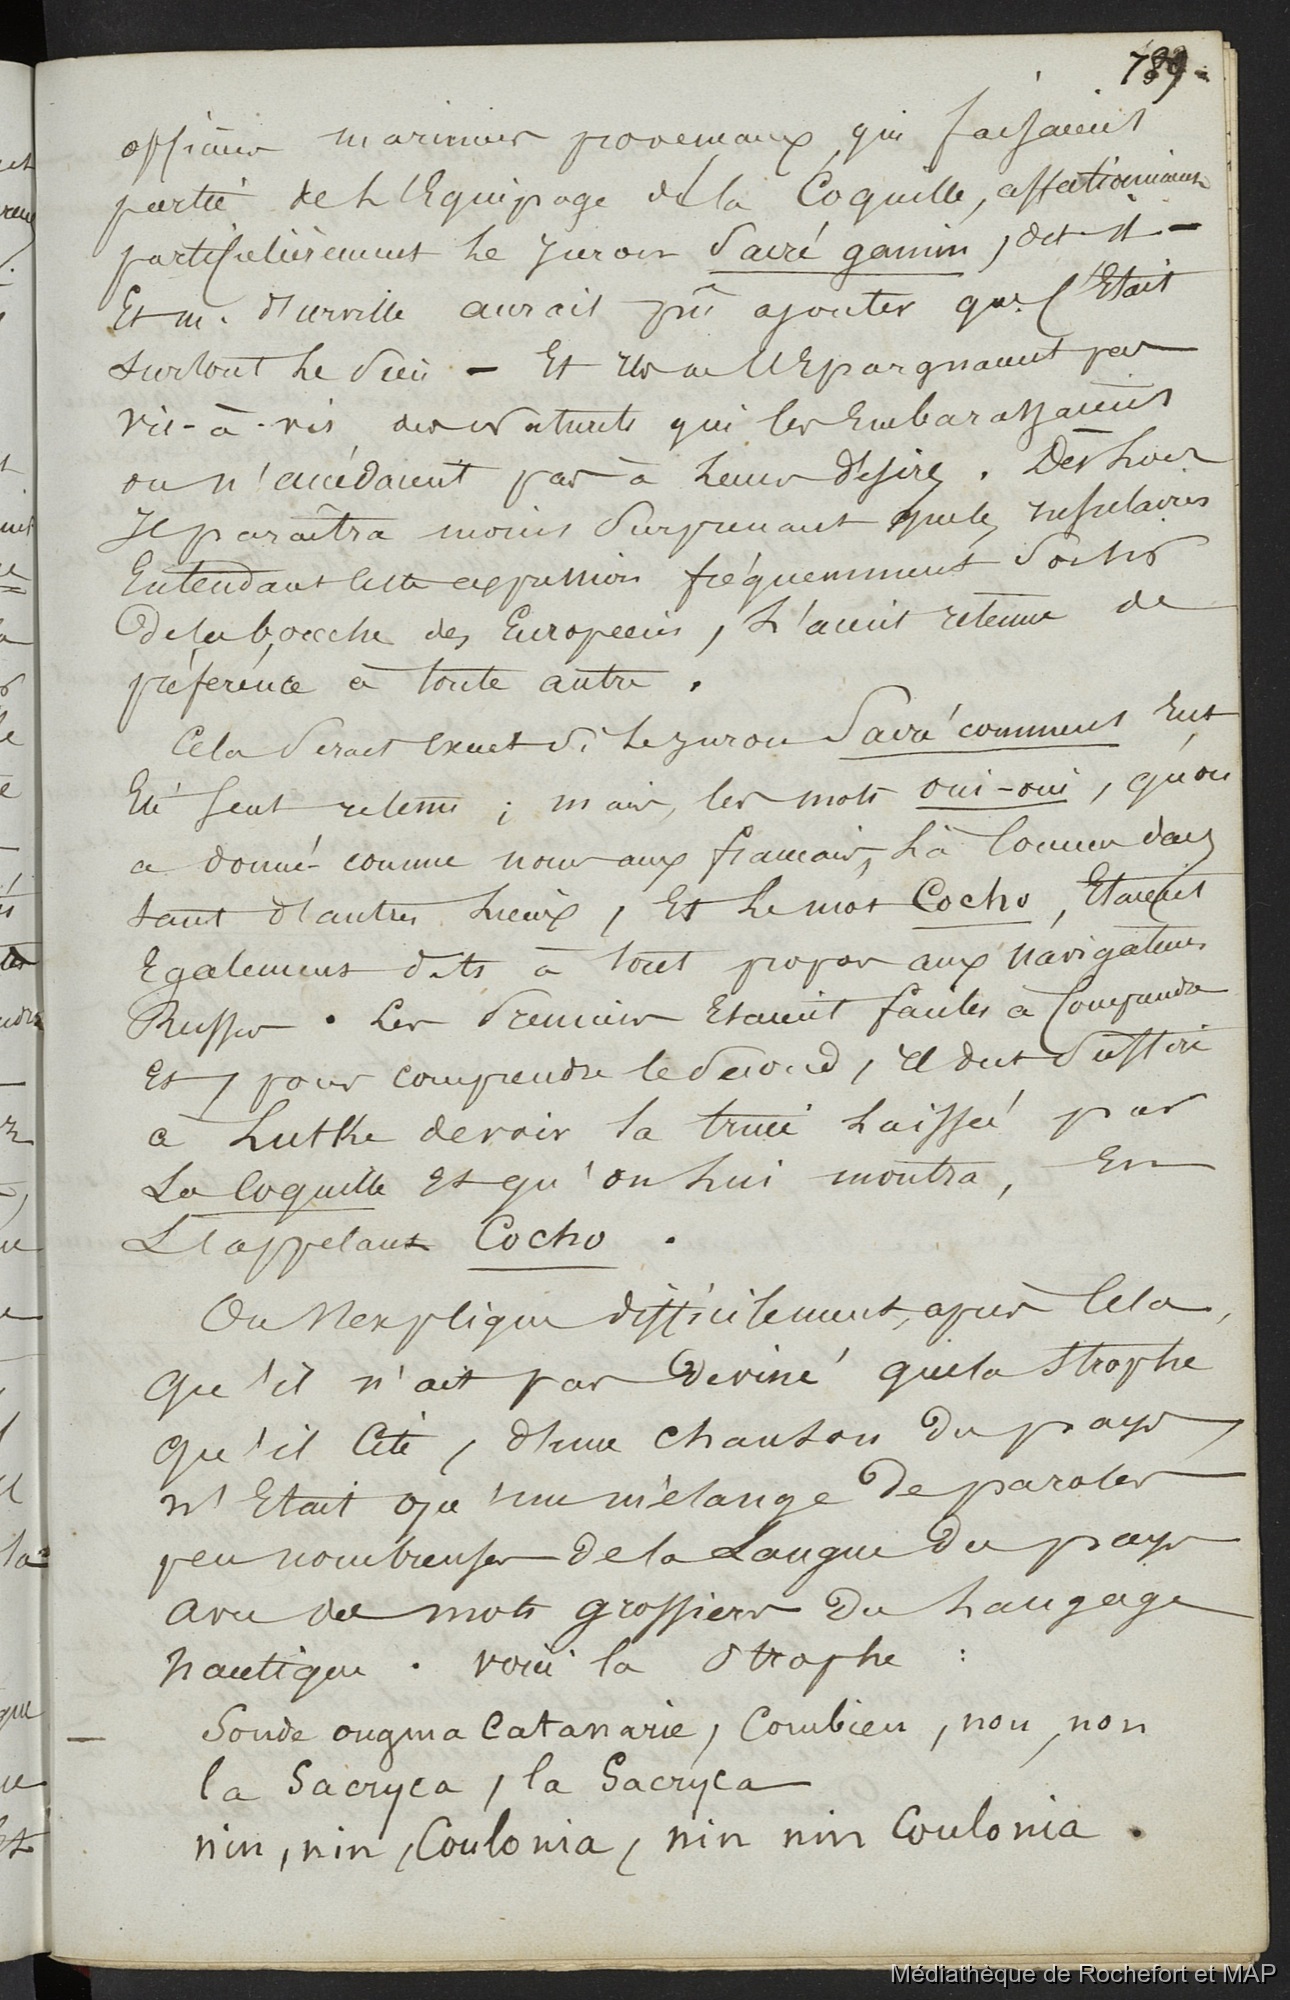 789.
officiers mariniers provencaux, qui faisaient
partie de l'Equipage de la Coquille, affectionnaient
particulièrement le juron Sacré gamin, dit-il -
Et m. d'urville aurait pu ajouter que c'Etait
surtout le sien - Et ils ne l'Epargnaient pas
vis-à-vis des naturels qui les Embarassaient
ou n'accédaient pas à leurs désirs. Dès lors
Il paraîtra moins surprenant que les insulaires
Entendant cette expression fréquemment sortir
de la bouche des Européens, l'aient retenue de
préférence à toute autre.
Cela serait exact si le juron Sacré comment Eut
Eté seul retenu ; mais, les mots oui-oui, qu'on
a donné comme nom aux francais, là comme dans
tant d'autres lieux, Et le mot Cocho, Etaient
Egalement dits à tout propos aux navigateurs
Russes. Les premiers Etaient faciles à Comprendre
Et, pour comprendre le second, il dut suffire
a Lutke de voir la truie laissée par
La Coquille Et qu'on lui montra, En
L'appelant Cocho.
On s'explique difficilement, après Cela,
que'il n'ait pas deviné que la strophe
que'il Cite, d'une chanson du pays,
n'Etait qu'un mélange de paroles
peu nombreuses de la Langue du pays
avec des mots grossiers du Langage
nautique. voici la strophe :
— Sonde ougma Catanarie, Combien, non, non
la Sacryca, la Sacryca
nin, nin, Coulonia, nin nin Coulonia.
Médiathèque de Rochefort et MAP